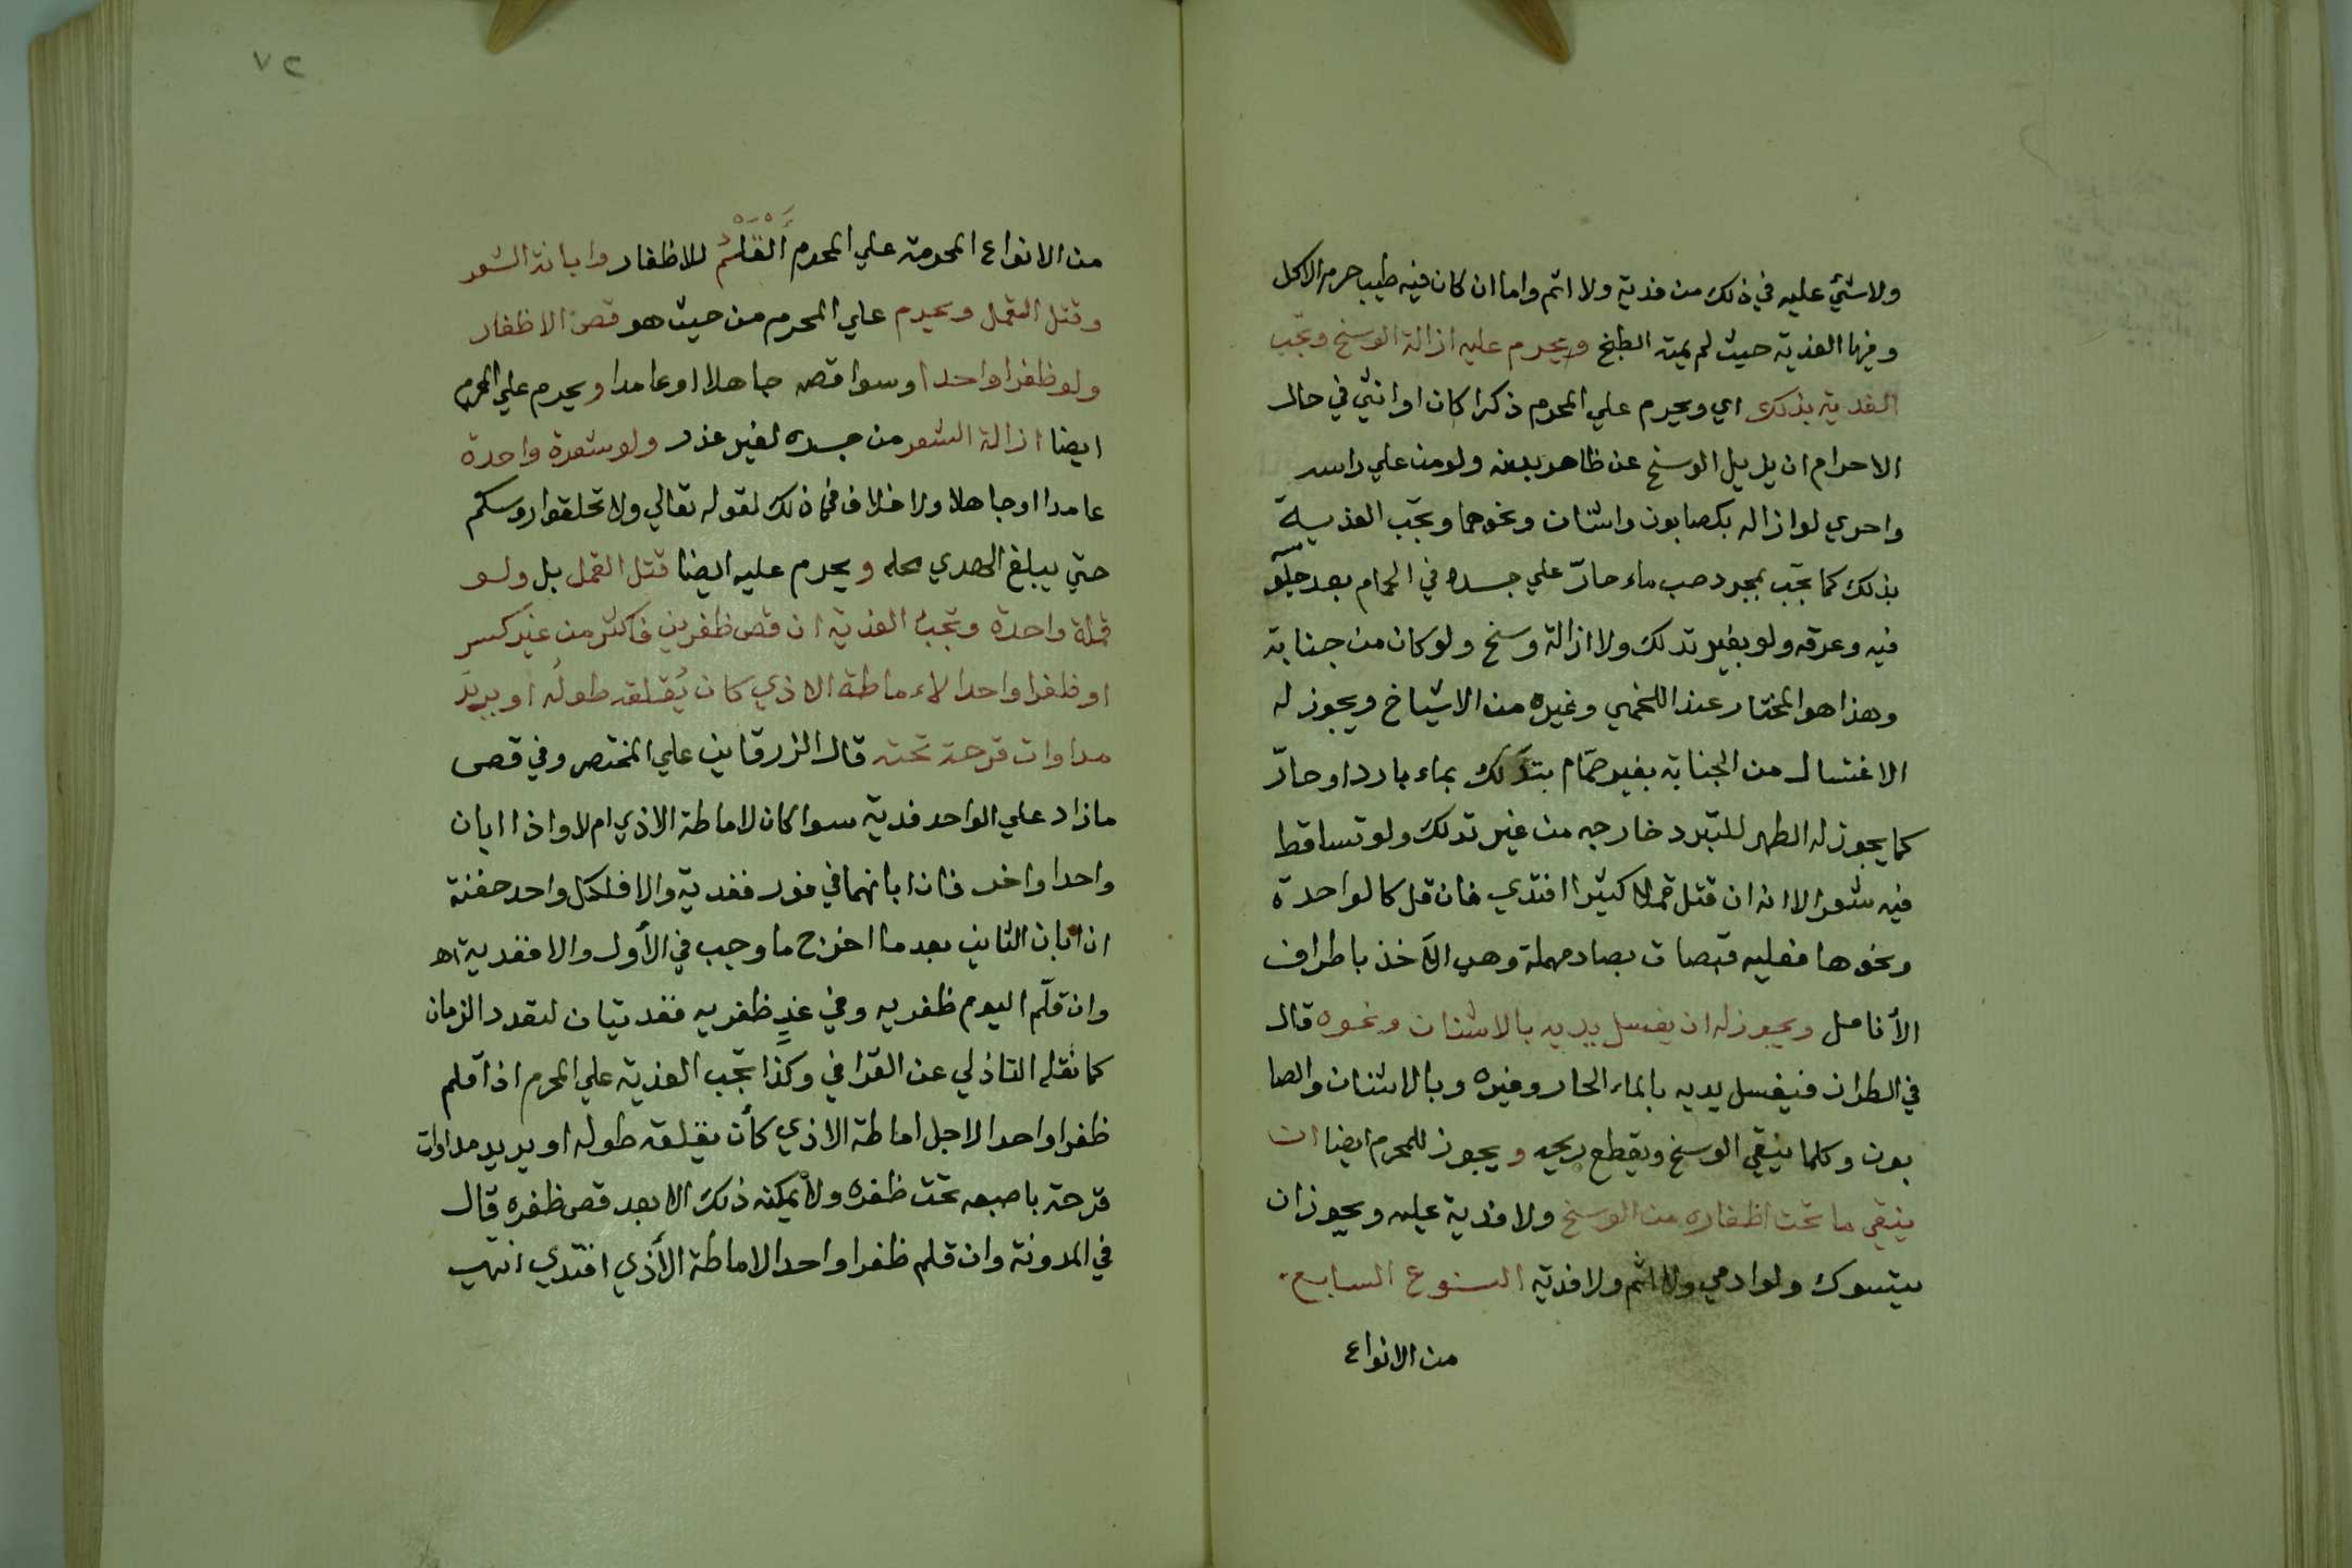 ولا شيء عليه في ذلك من فدية ولا اثم واما ان كان فيه طيب حرم الاكل
وفيها الفدية حيث لم يمته الطبخ ويحرم عليه ازالة الوسخ وتجب
الفدية بذلك اي ويحرم علي المحرم ذكرا كان او انثي في حال
الاحرام ان يزيل الوسخ عن ظاهر بدنه ولو من علي راسه
واحري لو ازاله بكصابون واشنان ونحوهما وتجب الفدية
بذلك كما تجب بمجرد صب ماء حارّ علي جسده في الحمام بعد جلو
فيه وعرقه ولو بغير تدلك ولا ازالة وسخ ولو كان من جنابة
وهذا هو المختار عند اللخمي وغيره من الاشياخ ويجوز له
الاغتسال من الجنابة بغير حمّام بتدلك بماء بارد او حارّ
كما يجوز له الطهر للتبرد خارجه من غير تدلك ولو تساقط
فيه شعر الا انه ان قتل قملا كثيرا افتدي فان قل كالواحدة
ونحوها فعليه قبصات بصاد مهملة وهي الأخذ باطراف
الأنامل ويجوز له ان يغسل يديه بالاشنان ونحوه قال
في الطراز فيغسل يديه بالماء الحار وغيره وبالاشنان والصا
بون وكلما ينقي الوسخ ويقطع ريحه ويجوز للمحرم ايضا ان
ينقي ما تحت اظفاره من الوسخ ولا فدية عليه ويجوز ان
يتسوك ولو ادمي ولا اثم ولا فدية النوع السابع
من الانواع
٧٢
من الانواع المحرمة علي المحرم القَلْمُ للاظفار وابانة الشعر
وقتل القمل ويحرم علي المحرم من حيث هو قص الاظفار
ولو ظفرا واحدا وسوا قصه جاهلا او عامدا ويحرم علي المحرم
ايضا ازالة الشعر من جسده لغير عذر ولو شعرة واحدة
عامدا او جاهلا ولا خلاف في ذلك لقوله تعالي ولا تحلقوا روسكم
حتي يبلغ الهدي محله ويحرم عليه ايضا قتل القمل بل ولو
قملة واحدة وتجب الفدية ان قص ظفرين فاكثر من غير كسر
او ظفرا واحدا لاءماطة الاذي كان يُقلقه طولُه او يريد
مداوات قرحة تحته قال الزرقاني علي المختصر وفي قص
مازاد علي الواحد فدية سوا كان لاماطة الاذي ام لا واذا ابان
واحدا واخر فان ابانهما في فور ففدية والا فلكل واحد حفنة
ان ابان الثاني بعد ما اخرج ما وجب في الأول والا ففدية اه
وان قلّم اليوم ظفريه وفي غدٍ ظفريه ففديتان لتعدد الزمان
كما نقله التاذلي عن القرافي وكذا تجب الفدية علي المحرم اذا قلم
ظفرا واحدا لاجل اماطة الاذي كأن يقلقه طوله او يريد مداوات
قرحة باصبعه تحت ظفره ولا يمكنه ذلك الا بعد قص ظفره قال
في المدونة وان قلم ظفرا واحدا لاماطة الأذي افتدي انتهي